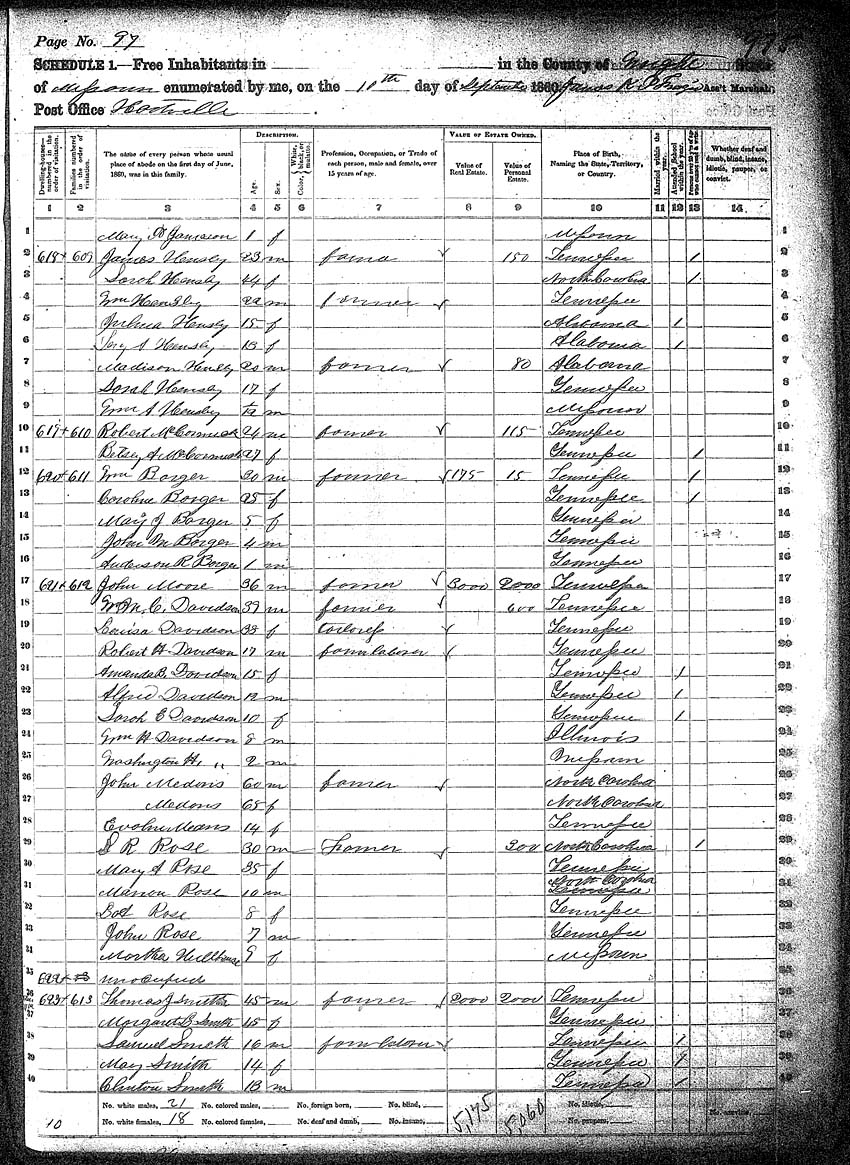 Page No. 97
SCHEDULE 1.—Free Inhabitants in in the County of Wright State
of Missouri enumerated by me, on the 10th day of September 1860. Ass't Marshal.
Post Office Hartville
Dwelling-houses—numbered in the order of visitation.
Families numbered in the order of visitation.
The name of every person whose usual place of abode on the first day of June, 1860, was in this family.
DESCRIPTION.
Age.
Sex.
Color, White, black, or mulatto.
Profession, Occupation, or Trade of each person, male and female, over 15 years of age.
VALUE OF ESTATE OWNED.
Value of Real Estate.
Value of Personal Estate.
Place of Birth, Naming the State, Territory, or Country.
Married within the year.
Attended School within the year.
Whether deaf and dumb, blind, insane, idiotic, pauper, or convict.
1 2 3 4 5 6 7 8 9 10 11 12 13 14
1 Mary Jameson 1 f Missouri 1
2 618 609 James Hensly m farmer 150 Tennessee 1 2
3 Sarah Hensly 44 f North Carolina 1 3
4 Wm Hensly 22 m farmer Tennessee 4
5 Hensly 15 f Alabama 1 5
6 Hensly 13 f Alabama 1 6
7 Madison Hensly 20 m farmer 80 Alabama 7
8 Sarah Hensly 17 f Tennessee 8
9 Wm A Hensly m Missouri 9
10 619 610 Robert McCormick 24 m farmer 115 Tennessee 10
11 Betsy A McCormick 27 f Tennessee 1 11
12 620 611 Wm Barger 30 m farmer 175 15 Tennessee 1 12
13 Caroline Barger 28 f Tennessee 1 13
14 Mary J Barger 5 f Tennessee 14
15 John M Barger 4 m Tennessee 15
16 Anderson R Barger 1 m Tennessee 16
17 621 612 John Moore 36 m farmer 3000 2000 Tennessee 17
18 Wm. C. Davidson 39 m farmer 600 Tennessee 18
19 Louisa Davidson 38 f tailoress Tennessee 19
20 Robert H Davidson 17 m farm laborer Tennessee 20
21 Amanda B. Davidson 15 f Tennessee 1 21
22 Alfred Davidson 12 m Tennessee 1 22
23 Sarah E Davidson 10 f Tennessee 1 23
24 Wm H Davidson 8 m Illinois 24
25 Washington H. " 2 m Missouri 25
26 John Medons 60 m farmer North Carolina 26
27 Medons 65 f North Carolina 27
28 Means 14 f Tennessee 28
29 S R Rose 30 m Farmer 300 North Carolina 1 29
30 Mary A Rose 35 f Tennessee 30
31 Marion Rose 10 m North Carolina 31
32 Rose 8 f Tennessee 32
33 John Rose 7 m Tennessee 33
34 Martha 9 f Missouri 34
35 622 unoccupied 35
36 623 613 Thomas J Smith 45 m farmer 2000 2000 Tennessee 36
37 Margaret B Smith 45 f Tennessee 37
38 Samuel Smith 16 m farm laborer Tennessee 1 38
39 Mary Smith 14 f Tennessee 1 39
40 Clinton Smith 13 m Tennessee 1 40
No. white males, 21 No. colored males, No. foreign born, No. blind, 5,175 5,060 No. idiotic, No. convicts,
10 No. white females, 18 No. colored females, No. deaf and dumb, No. insane, No. paupers,